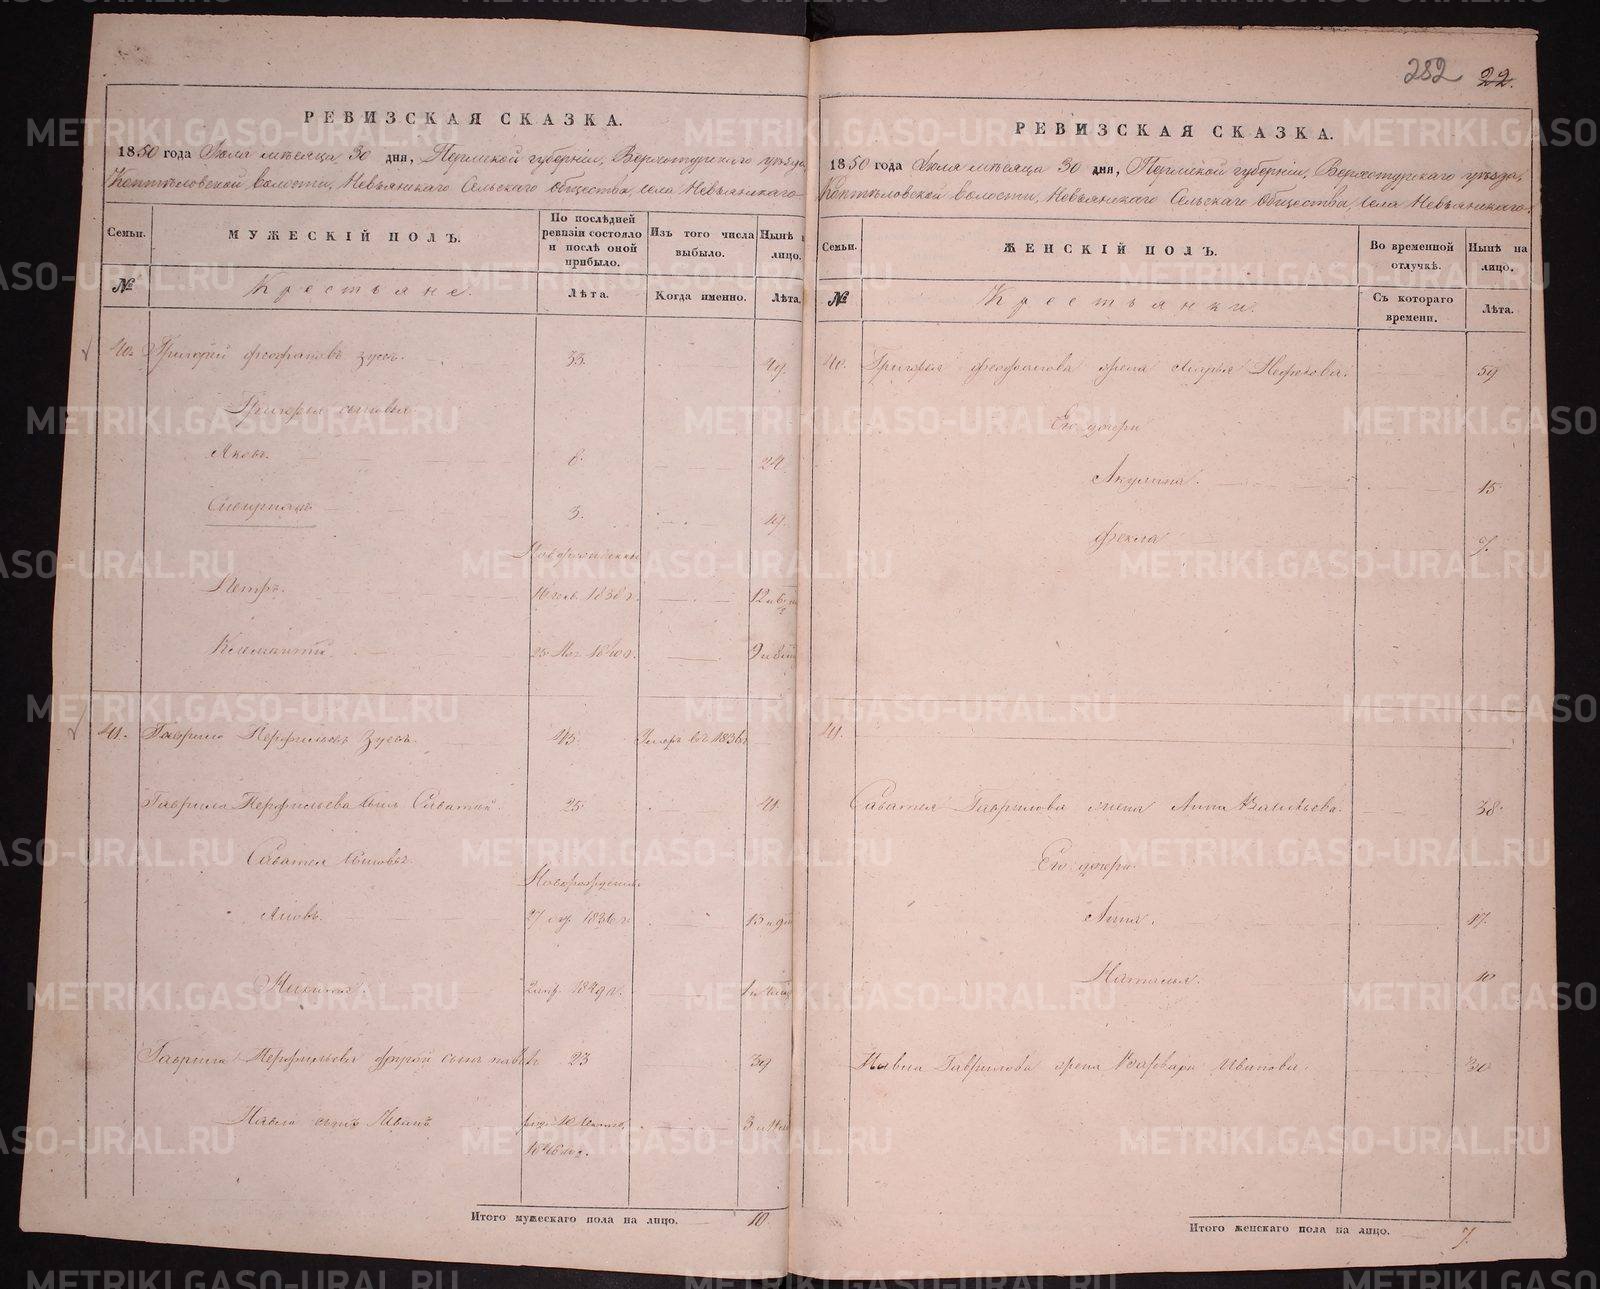 282 22.
РЕВИЗСКАЯ СКАЗКА.
1850 года Июля месяца 30 дня, Пермской губернiи, Верхотурскаго уѣзда,
Коптѣловской волости, Невьянскаго Сельскаго общества, села Невьянскаго
Семьи.
МУЖЕСКIЙ ПОЛЪ.
По послѣдней ревизiи состояло и послѣ оной прибыло.
Изъ того числа выбыло.
Нынѣ
лицо.
№
Крестьяне.
Лѣта.
Когда именно.
Лѣта.
40. Григорiй Феофановъ Зуевъ. 33. 49.
Григорья сыновья
Яковъ. 6. 24.
3. 19.
Новорожденны
Петръ. 1838 г. 12 и 6
Климантiй 25 1840 г. 9 и 8
41. Гаврило Перфильевъ Зуевъ. 45. Умеръ въ 1836 г.
Гаврила Перфильева сынъ Саватiй. 25. 41.
Саватея сыновья
Новорожден
Яковъ. 27 1836 г. 13 и 9
Никита. 1849 г. 1 и
Гаврила Перфильева другой сынъ Павелъ 23 39
Павла сынъ Иванъ 3 и
1846 го г.
Итого мужескаго пола на лицо. 10
РЕВИЗСКАЯ СКАЗКА.
1850 года Июля месяца 30 дня, Пермской губернiи, Верхотурскаго уѣзда,
Коптѣловской волости, Невьянскаго Сельскаго общества, села Невьянскаго.
Семьи.
ЖЕНСКIЙ ПОЛЪ.
Во временной отлучкѣ.
Нынѣ на лицо.
№
Крестьянки.
Съ котораго времени.
Лѣта.
40. Григорья Феофанова жена Марья Нефедова. 59
Его дочери
Акулина. 15
Фекла 7.
41.
Саватея Гаврилова жена Анна Васильева. 38
Его дочери
Анна. 17.
Наталья. 10
Павла Гаврилова жена Варвара Иванова. 30
Итого женскаго пола на лицо. 7.
METRIKI.GASO-URAL.RU